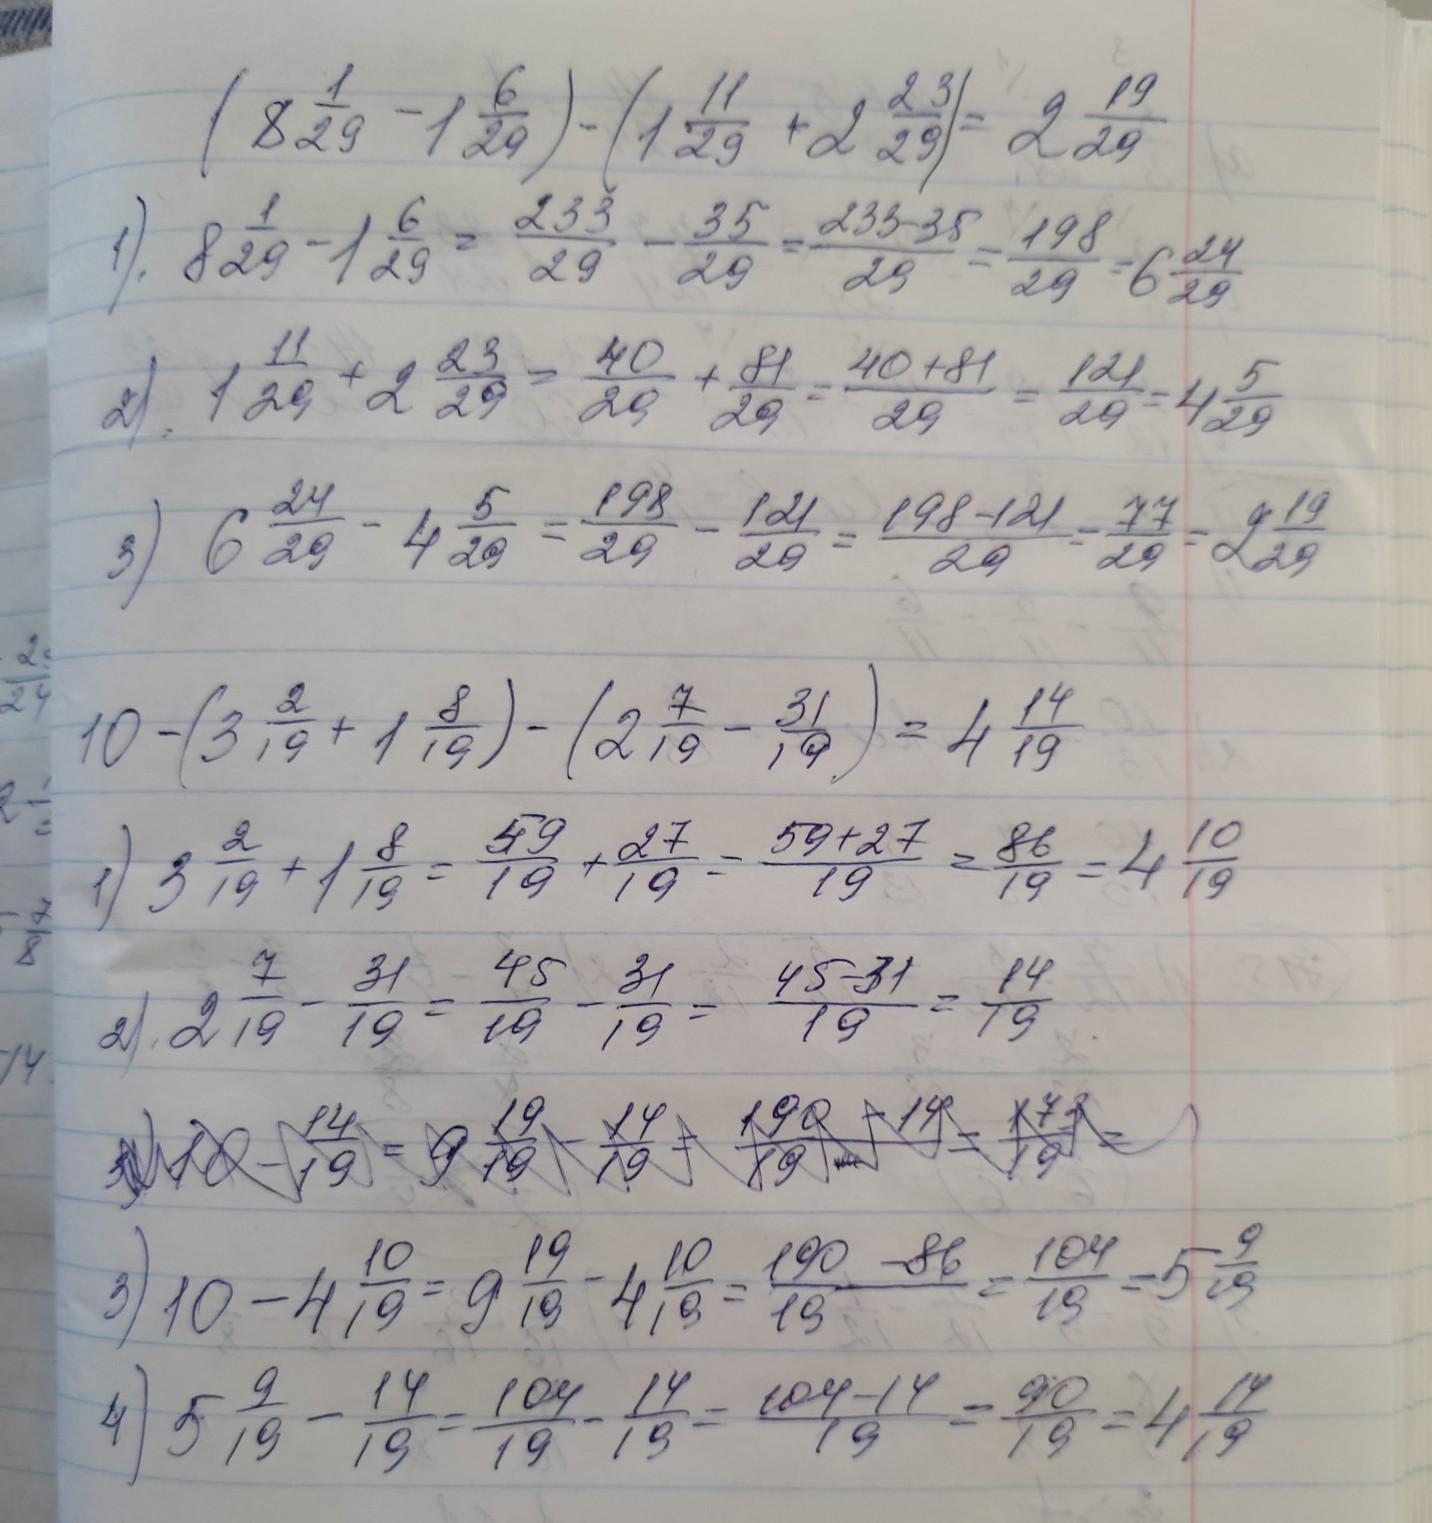 (8 1/29 - 1 6/29) - (1 11/29 + 2 23/29) = 2 19/29
1). 8 1/29 - 1 6/29 = 233/29 - 35/29 = 233-35/29 = 198/29 = 6 24/29
2). 1 11/29 + 2 23/29 = 40/29 + 81/29 = 40+81/29 = 121/29 = 4 5/29
3) 6 24/29 - 4 5/29 = 198/29 - 121/29 = 198-121/29 = 77/29 = 2 19/29
10 - (3 2/19 + 1 8/19) - (2 7/19 - 31/19) = 4 14/19
1) 3 2/19 + 1 8/19 = 59/19 + 27/19 = 59+27/19 = 86/19 = 4 10/19
2). 2 7/19 - 31/19 = 45/19 - 31/19 = 45-31/19 = 14/19
3) 10 - 4 10/19 = 9 19/19 - 4 10/19 = 190-86/19 = 104/19 = 5 9/19
4) 5 9/19 - 14/19 = 104/19 - 14/19 = 104-14/19 = 90/19 = 4 14/19